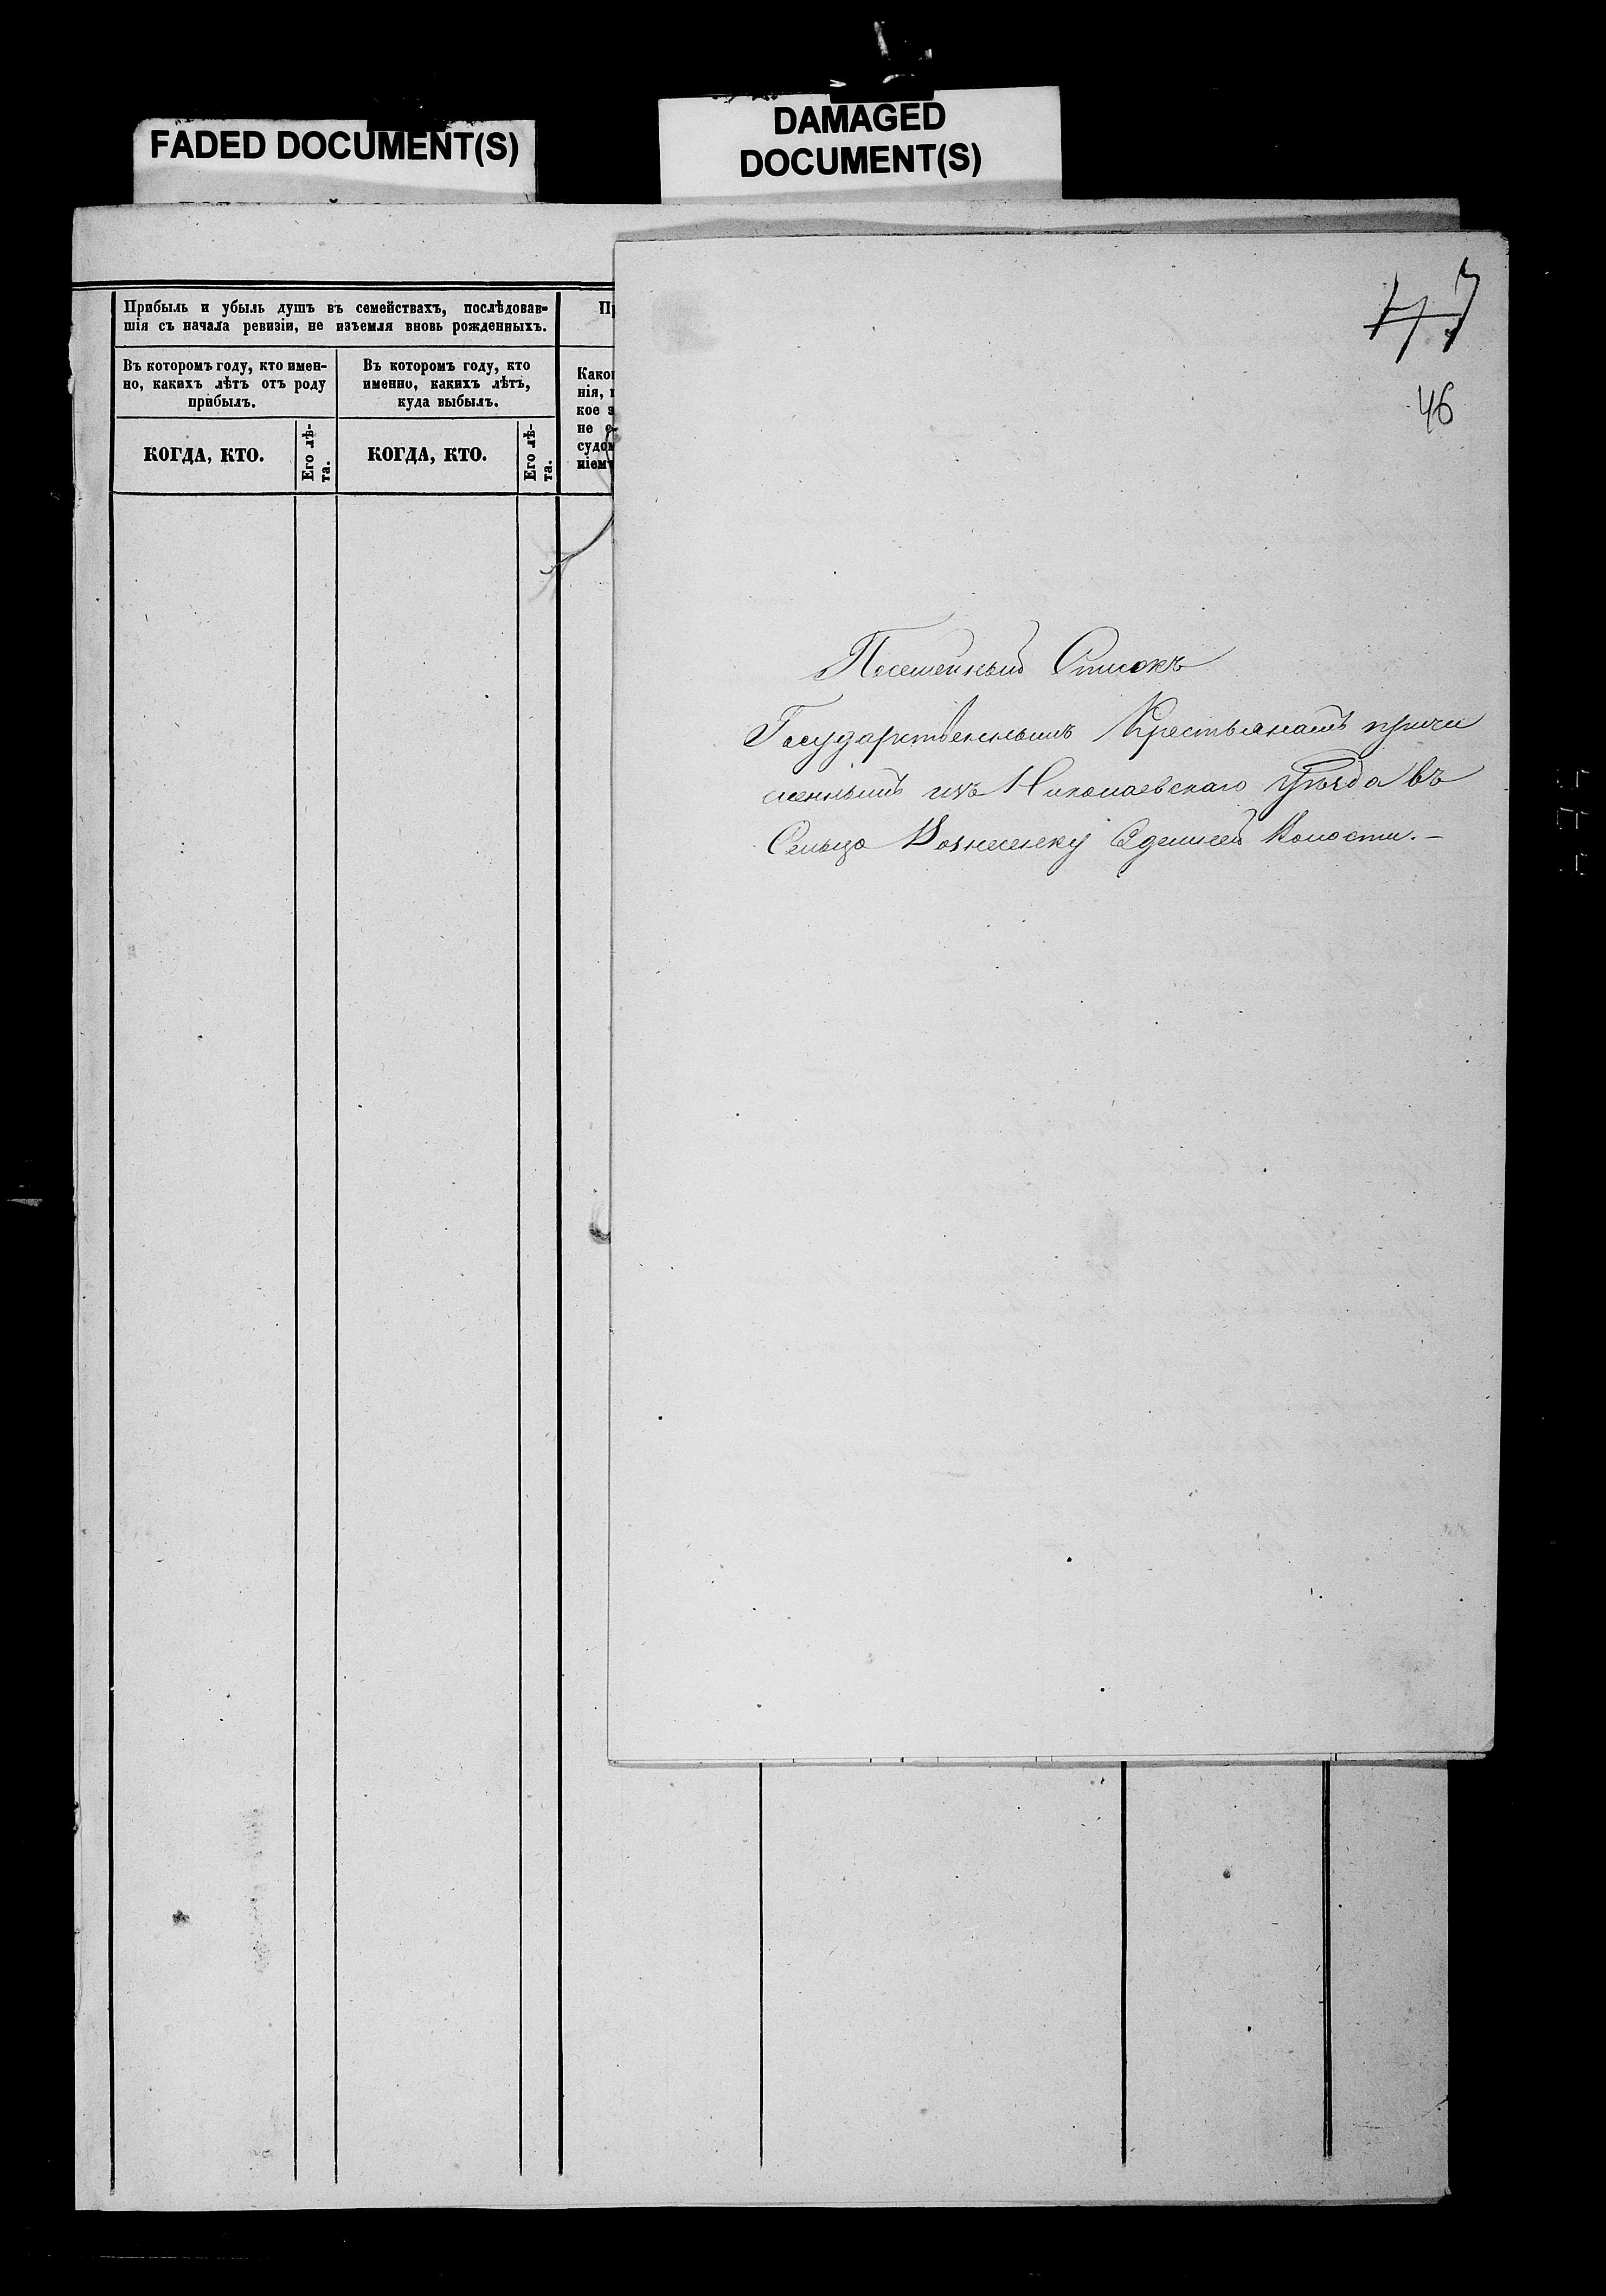 FADED DOCUMENT(S)
DAMAGED
DOCUMENT(S)
Прибыль и убыль душъ въ семействахъ, послѣдовав-
шія съ начала ревизіи, не изъемля вновь рожденныхъ.
Въ которомъ году, кто имен-
но, какихъ лѣтъ отъ роду
прибылъ.
Въ которомъ году, кто
именно, какихъ лѣтъ,
куда выбылъ.
КОГДА, КТО.
Его лѣ-
та.
КОГДА, КТО.
Его лѣ-
та.
нія,
кое
не
47
46
Посемейный Списокъ
Государственнымъ Крестьянамъ причи
сленнымъ изъ Николаевскаго Уѣзда въ
Сельцо Вознесенку Волости.-